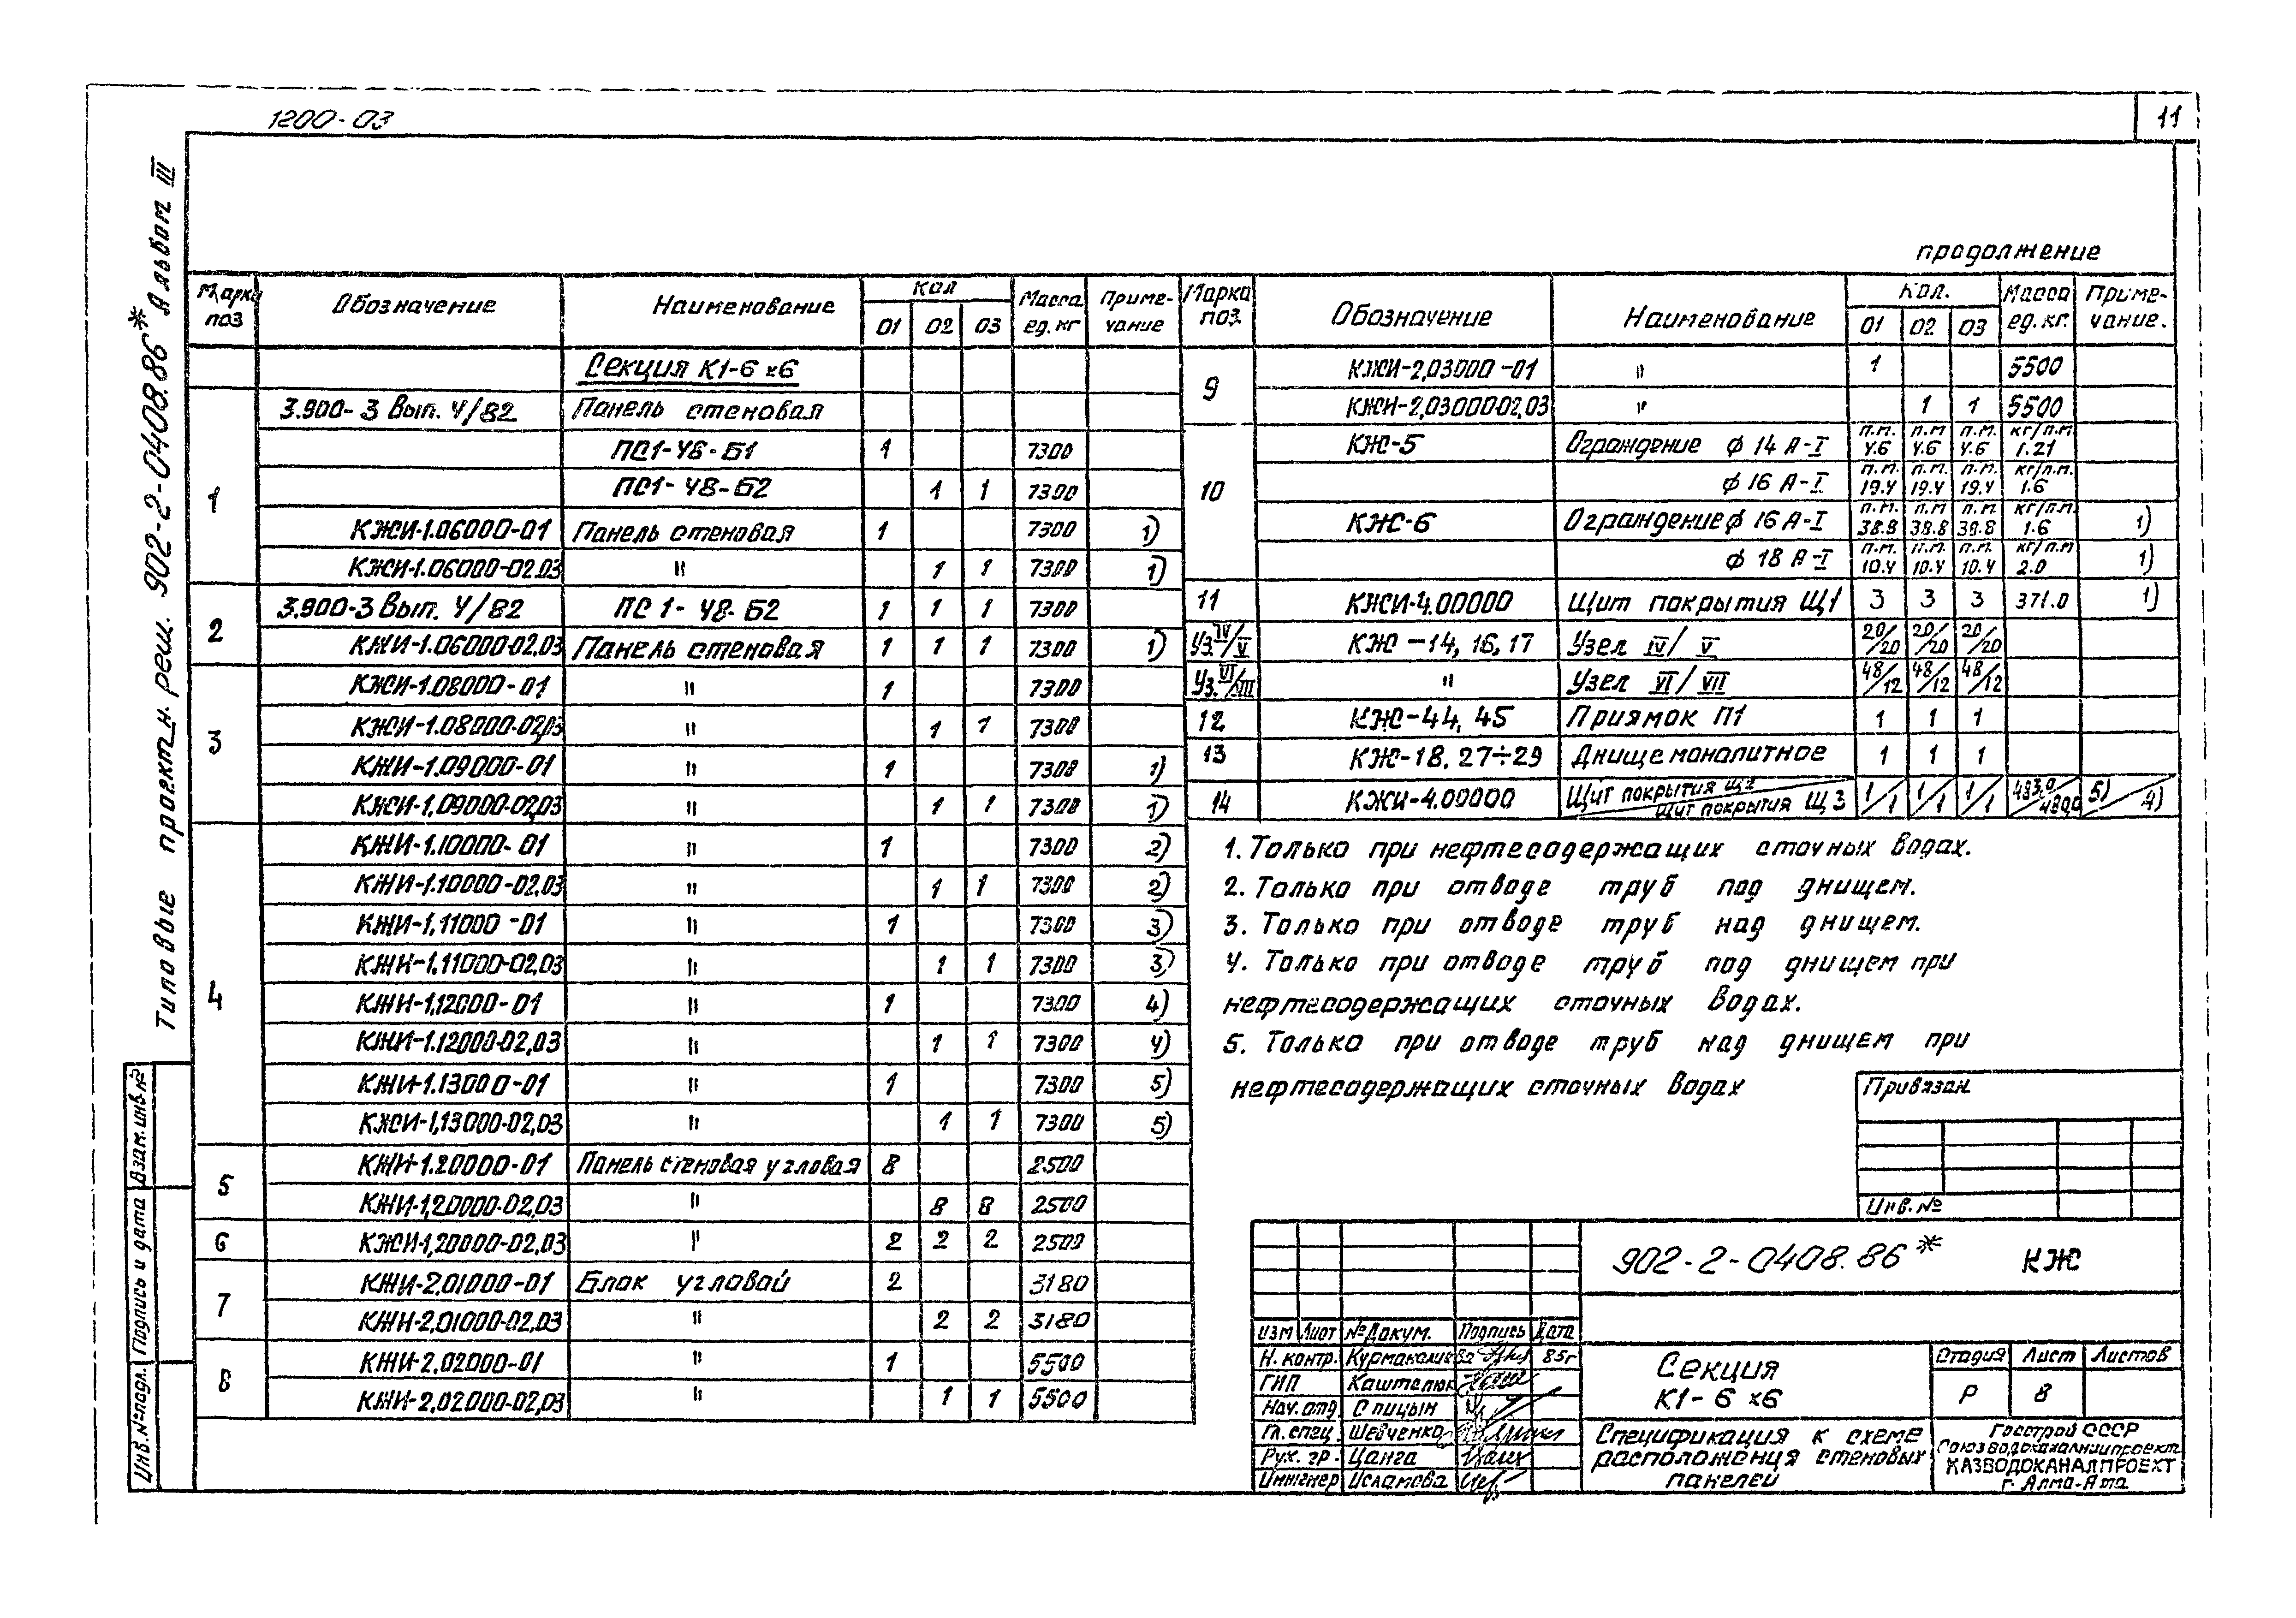 1200-03
11
Типовые проектн. реш. 902-2-0408.86* Альбом III
продолжение
Марка поз | Обозначение | Наименование | Кол | Масса ед. кг | Примечание
01 | 02 | 03
Секция К1-6х6
1
3.900-3 Вып. 4/82 Панель стеновая
ПС1-48-Б1 1 7300
ПС1-48-Б2 1 1 7300
КЖИ-1.06000-01 Панель стеновая 1 7300 1)
КЖИ-1.06000-02.03 " 1 1 7300 1)
2
3.900-3 Вып. 4/82 ПС1-48-Б2 1 1 1 7300
КЖИ-1.06000-02.03 Панель стеновая 1 1 1 7300 1)
3
КЖИ-1.08000-01 " 1 7300
КЖИ-1.08000-02,03 " 1 1 7300
КЖИ-1.09000-01 " 1 7300 1)
КЖИ-1.09000-02,03 " 1 1 7300 1)
4
КЖИ-1.10000-01 " 1 7300 2)
КЖИ-1.10000-02.03 " 1 1 7300 2)
КЖИ-1,11000-01 " 1 7300 3)
КЖИ-1,11000-02,03 " 1 1 7300 3)
КЖИ-1,12000-01 " 1 7300 4)
КЖИ-1.12000-02,03 " 1 1 7300 4)
КЖИ-1.13000-01 " 1 7300 5)
КЖИ-1,13000-02,03 " 1 1 7300 5)
5
КЖИ-1.20000-01 Панель стеновая угловая 8 2500
КЖИ-1,20000-02,03 " 8 8 2500
6 КЖИ-1,20000-02,03 " 2 2 2 2500
7
КЖИ-2.01000-01 Блок угловой 2 3180
КЖИ-2,01000-02,03 " 2 2 3180
8
КЖИ-2,02000-01 " 1 5500
КЖИ-2,02000-02,03 " 1 1 5500
Марка поз. | Обозначение | Наименование | Кол. | Масса ед. кг. | Примечание.
01 | 02 | 03
9
КЖИ-2,03000-01 " 1 5500
КЖИ-2,03000-02,03 " 1 1 5500
10
КЖ-5 Ограждение ф 14 А-I п.м. 4.6 п.м 4.6 п.м. 4.6 кг/п.м 1.21
ф 16 А-I п.м. 19.4 п.м. 19.4 п.м. 19.4 кг/п.м. 1.6
КЖ-6 Ограждение ф 16 А-I п.м. 38.8 п.м 38.8 п.м. 38.8 кг/п.м. 1.6 1)
ф 18 А-I п.м. 10.4 п.м. 10.4 п.м. 10.4 кг/п.м 2.0 1)
11 КЖИ-4.00000 Щит покрытия Щ1 3 3 3 371.0 1)
Уз.IV/V КЖ-14, 16, 17 Узел IV/V 20/20 20/20 20/20
Уз.VI/VII " Узел VI/VII 48/12 48/12 48/12
12 КЖ-44, 45 Приямок П1 1 1 1
13 КЖ-18, 27÷29 Днище монолитное 1 1 1
14 КЖИ-4.00000 Щит покрытия Щ2/Щит покрытия Щ3 1/1 1/1 1/1 483.0/480.0 5)/4)
1. Только при нефтесодержащих сточных водах.
2. Только при отводе труб под днищем.
3. Только при отводе труб над днищем.
4. Только при отводе труб под днищем при
нефтесодержащих сточных водах.
5. Только при отводе труб над днищем при
нефтесодержащих сточных водах
Привязан
Инв. №
902-2-0408.86* КЖ
Изм Лист № Докум. Подпись Дата
Н. контр. Курмакалиева 85г
ГИП Каштелюк
Нач. отд Спицын
Гл. спец. Шевченко
Рук. гр. Цанга
Инженер Исламова
Секция
К1-6х6
Стадия Лист Листов
Р 8
Спецификация к схеме
расположения стеновых
панелей
Госстрой СССР
Союзводоканалниипроект
КАЗВОДОКАНАЛПРОЕКТ
г. Алма-Ата
Взам. инв. №
Подпись и дата
Инв. № подл.